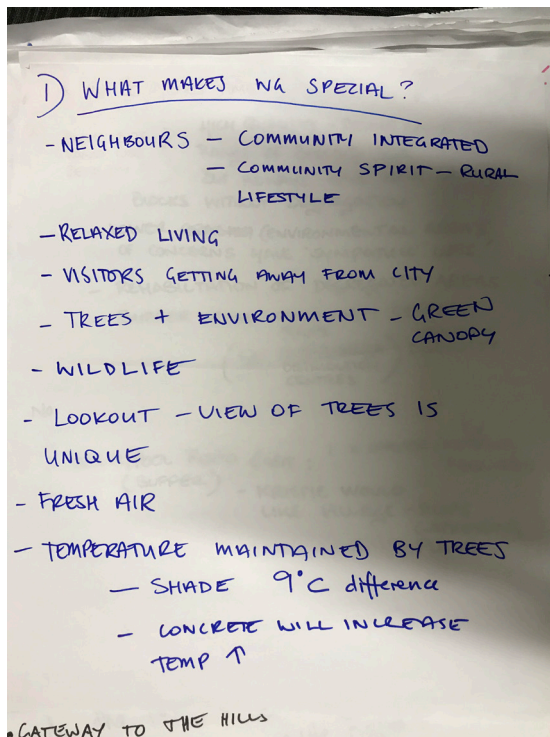 1) WHAT MAKES WG SPECIAL?
- NEIGHBOURS - COMMUNITY INTEGRATED
- COMMUNITY SPIRIT - RURAL
LIFESTYLE
- RELAXED LIVING
- VISITORS GETTING AWAY FROM CITY
- TREES + ENVIRONMENT - GREEN
CANOPY
- WILDLIFE
- LOOKOUT - VIEW OF TREES IS
UNIQUE
- FRESH AIR
- TEMPERATURE MAINTAINED BY TREES
- SHADE 9°C difference
- CONCRETE WILL INCREASE
TEMP ↑
• GATEWAY TO THE HILLS